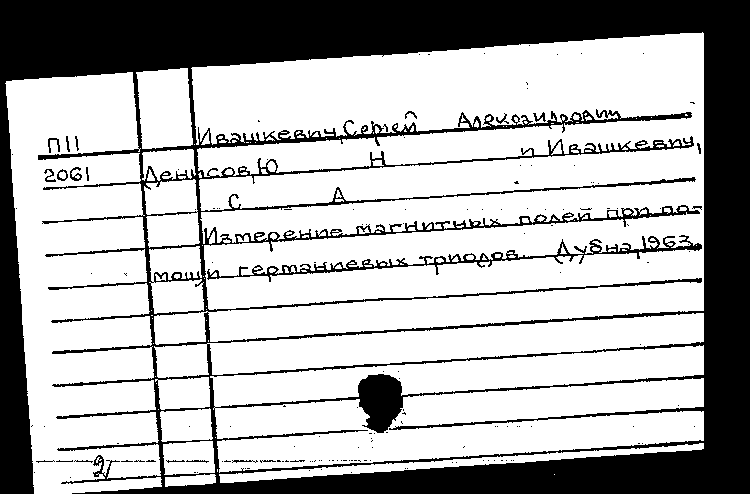 П11 Ивашкевич, Сергей Александрович
2061 Денисов, Ю Н и Ивашкевич,
С А
Измерение магнитных полей при по-
мощи германиевых триодов. Дубна, 1963.
2/